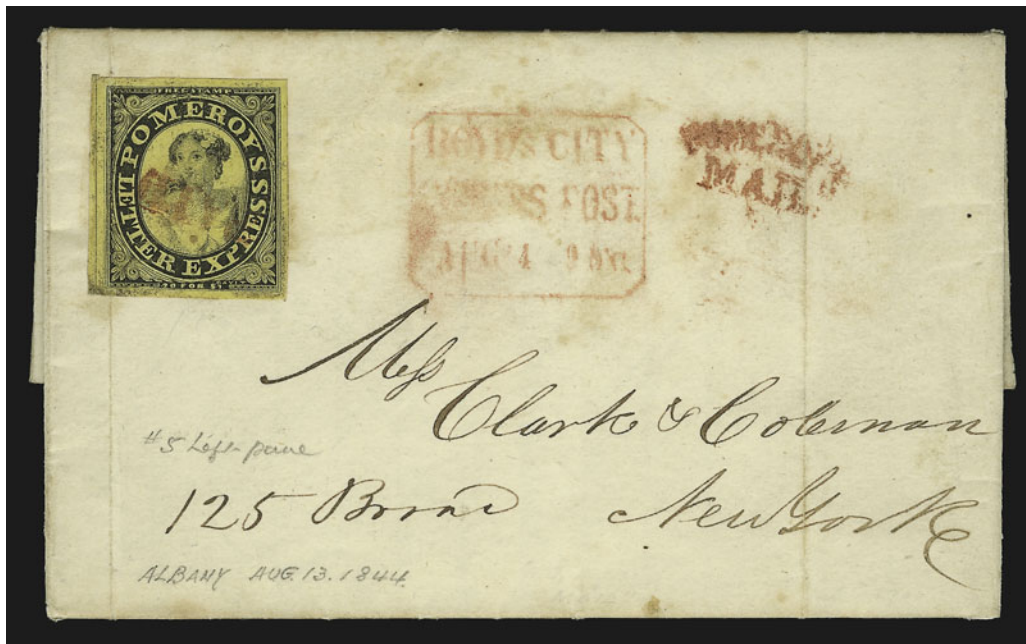 FREE STAMP
POMEROY'S
LETTER EXPRESS
20 FOR $1
BOYD'S CITY
EXPRESS POST.
AUG 14
POMEROY'S
MAIL.
Mess
Clark & Coleman
#5 Left pane
125 Broad New York
ALBANY AUG. 13. 1844.